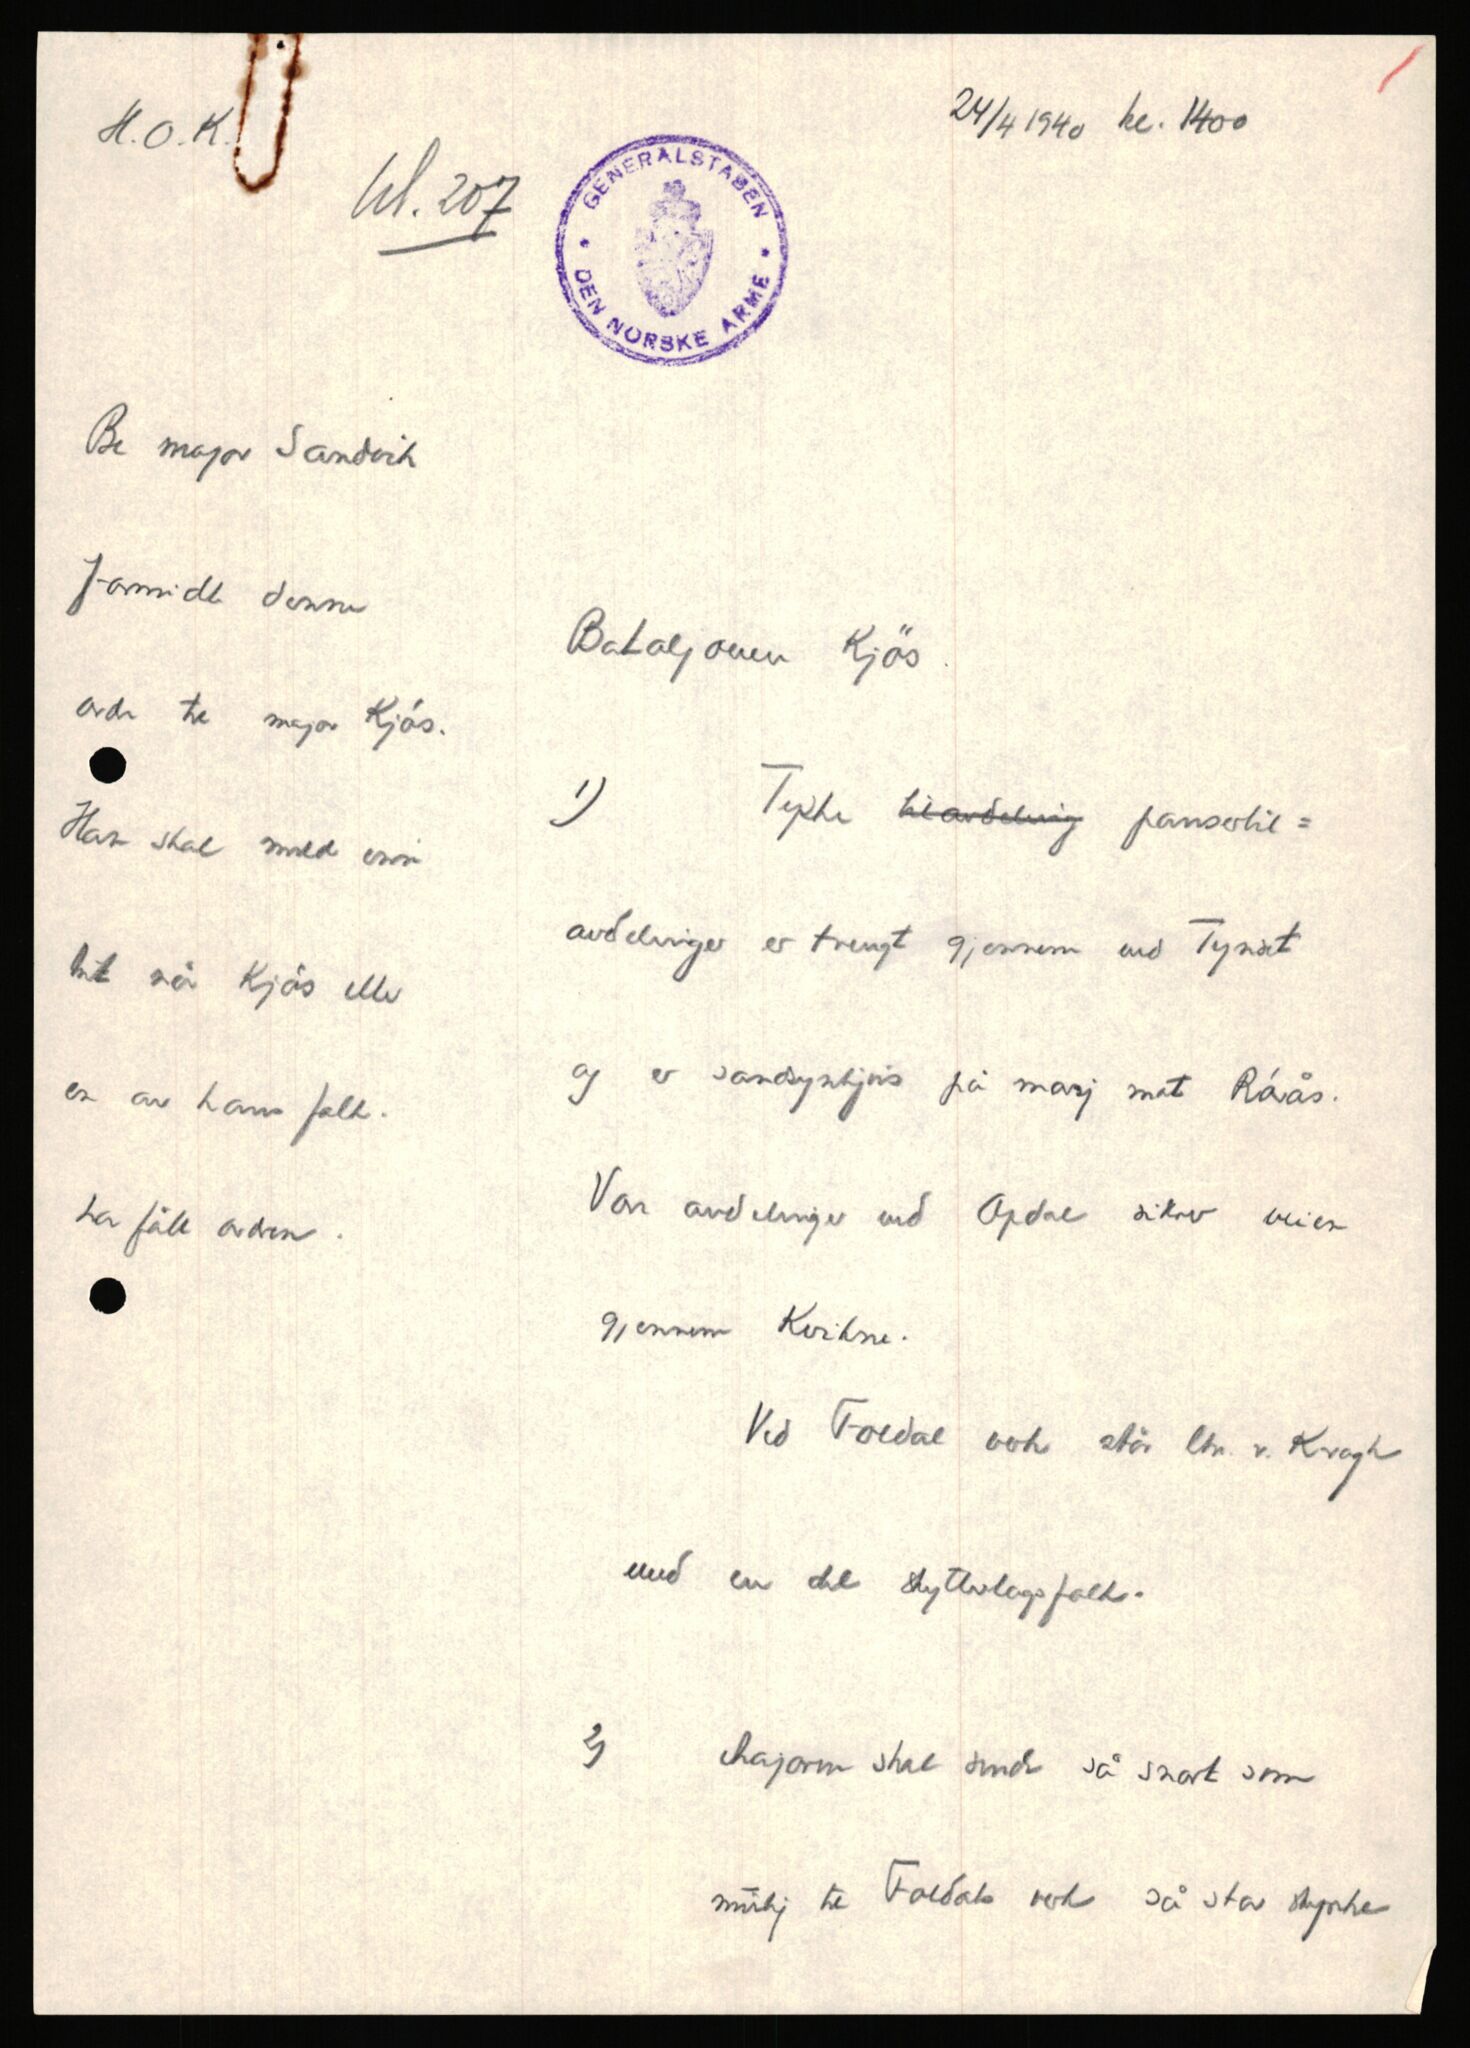 H.O.K.
24/4 1940 kl. 1400
Ul. 207
GENERALSTABEN
DEN NORSKE ARME
Be major Sandvik
formidle denne
ordre til major Kjös.
Han skal melde
hit når Kjös eller
en av hans folk
har fått ordren.
Bataljonen Kjös.
1) Tyske bilavdeling panserbil=
avdelinger er trengt gjennem ved Tynset
og er sandsynligvis på marsj mot Rörås.
Våre avdelinger ved Opdal sikrer veien
gjennem Kvikne.
Ved Foldal verk står ltn. v. Krogh
med en del skytterlagsfolk.
2) Majoren skal sende så snart som
mulig til Foldal verk så stor styrke